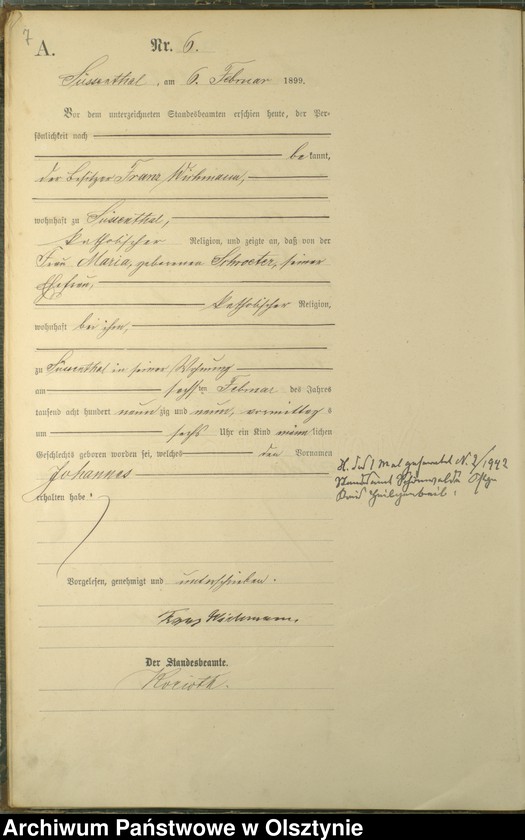 7
A.
Nr. 6.
Süssenthal, am 6. Februar 1899.
Vor dem unterzeichneten Standesbeamten erschien heute, der Per-
sönlichkeit nach
bekannt,
der Besitzer Franz Wichmann,
wohnhaft zu Süssenthal,
katholischer Religion, und zeigte an, daß von der
Frau Maria, geborenen Schroeter, seiner
Ehefrau,
katholischer Religion,
wohnhaft bei ihm,
zu Süssenthal in seiner Wohnung
am sechsten Februar des Jahres
tausend acht hundert neunzig und neun, vormittags
um sechs Uhr ein Kind männlichen
Geschlechts geboren worden sei, welches den Vornamen
Johannes
erhalten habe.
H. das 1 Mal geheiratet N. 2/1942
Standesamt Schönwalde
Kreis Heiligenbeil.
Vorgelesen, genehmigt und unterschrieben.
Franz Wichmann.
Der Standesbeamte.
Archiwum Państwowe w Olsztynie